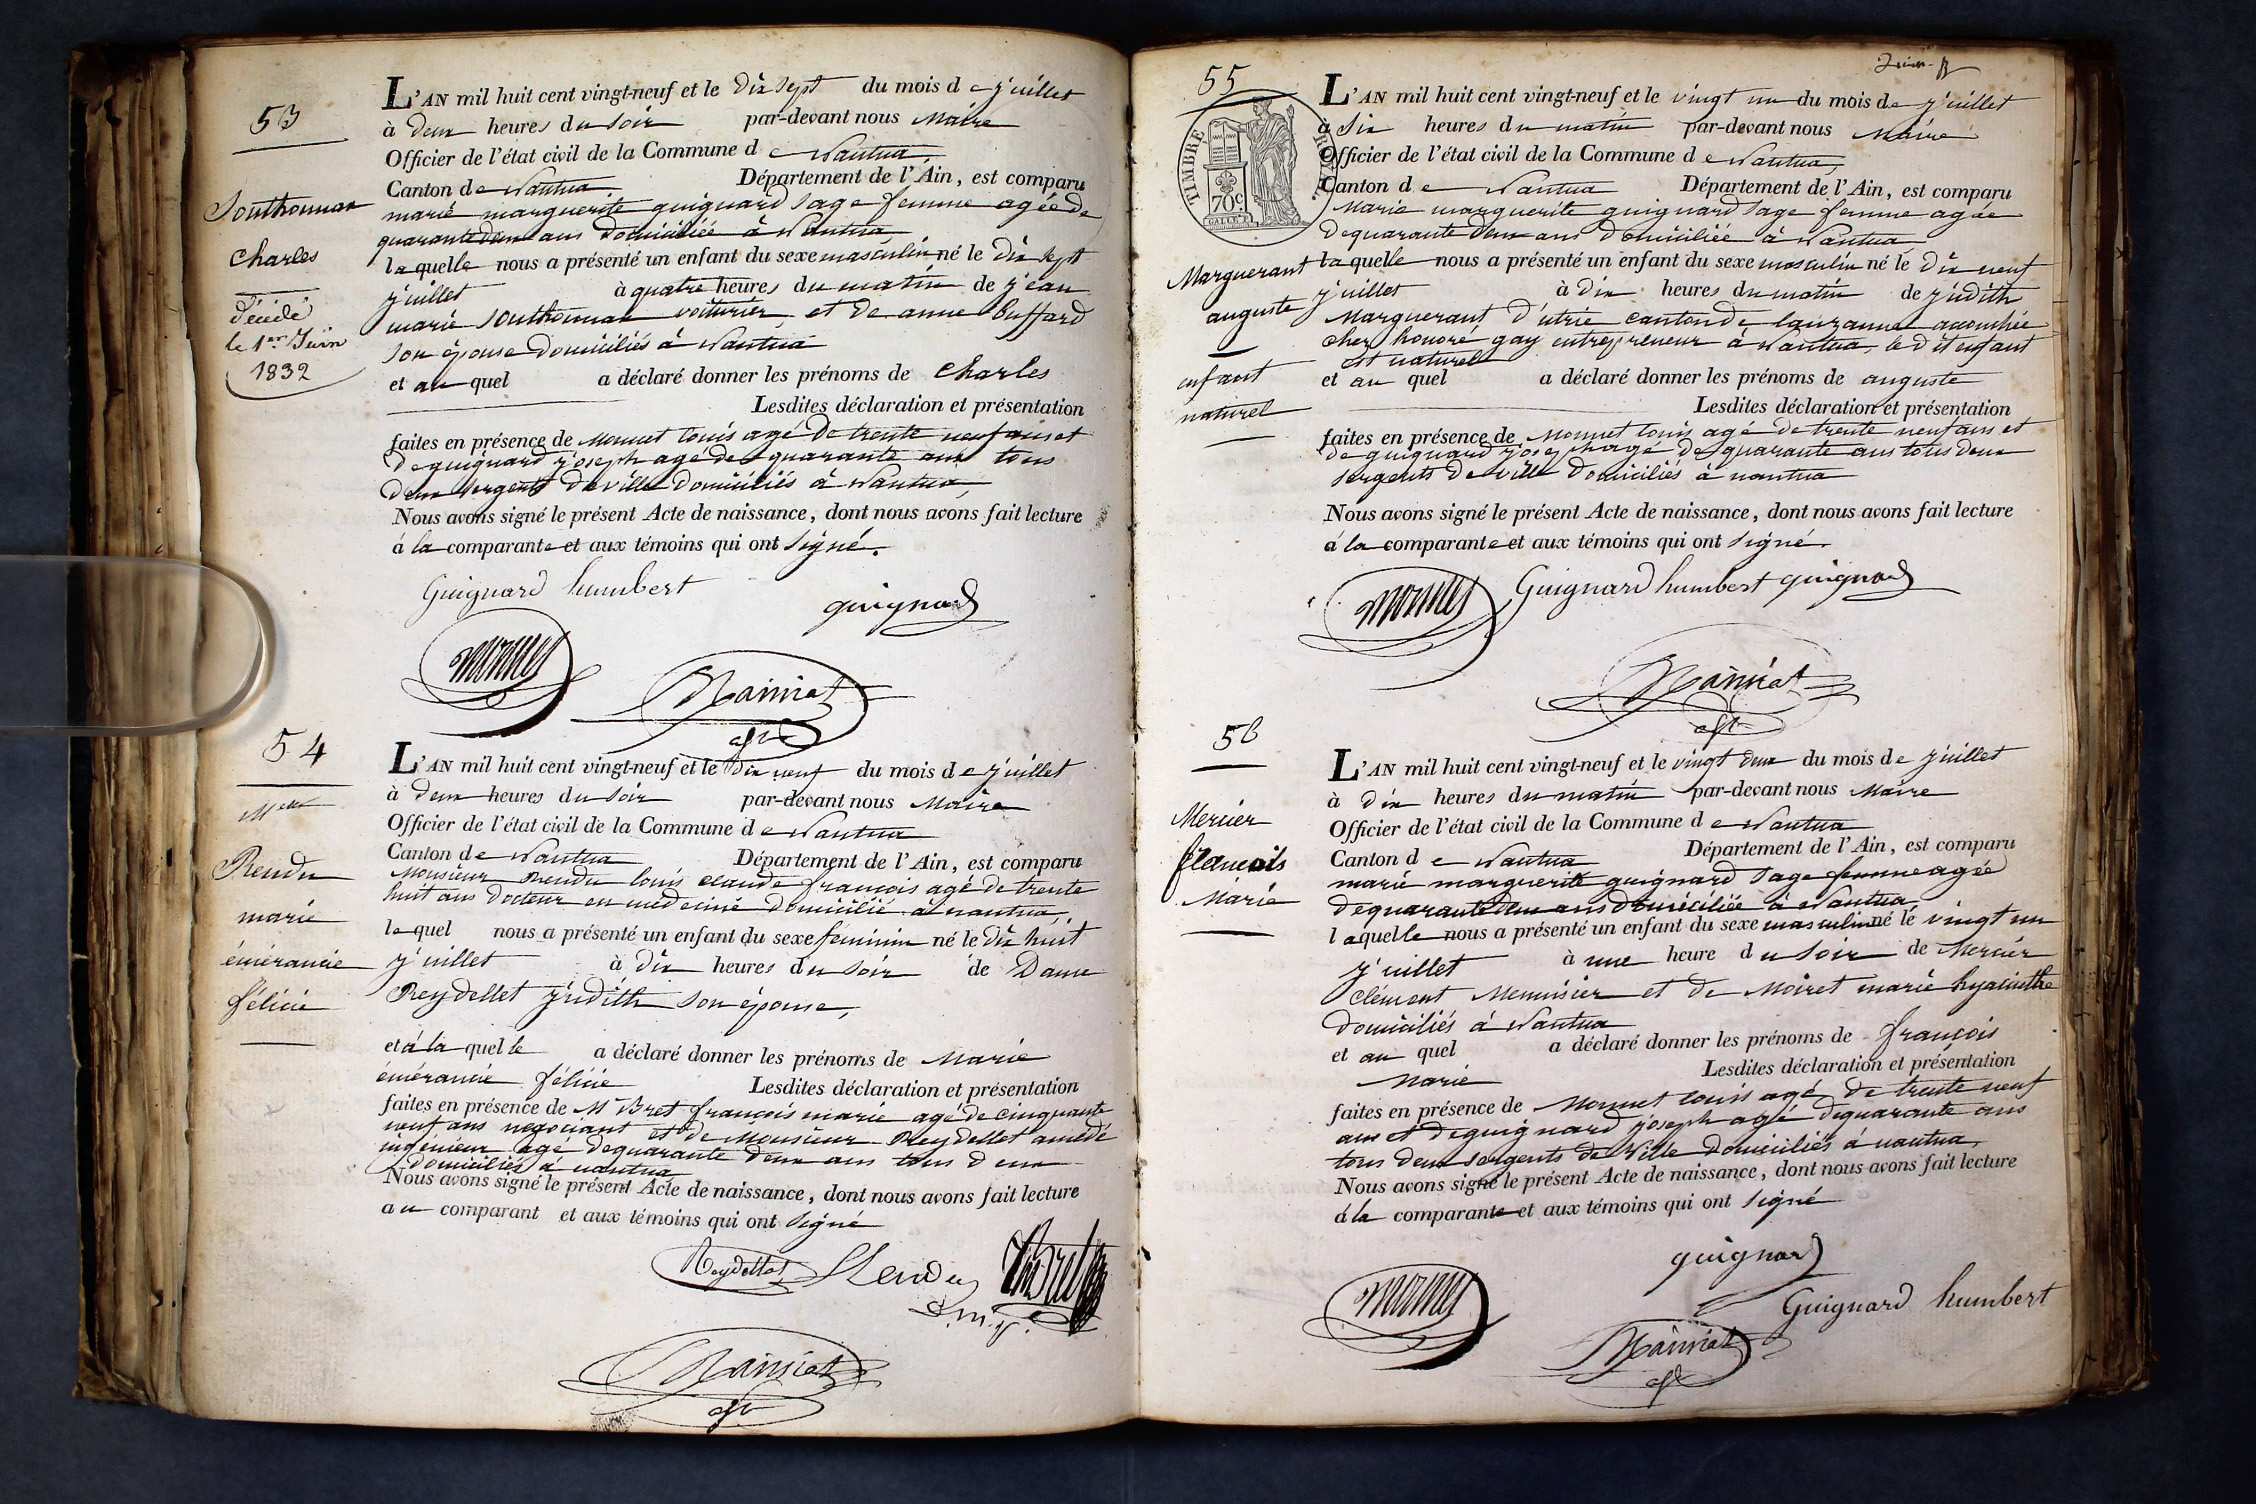 53
L'AN mil huit cent vingt-neuf et le dix sept du mois de juillet
à deux heures du soir par-devant nous Maire
Officier de l'état civil de la Commune de Nantua
Canton de Nantua Département de l'Ain, est comparu
marie marguerite guignard sage femme agée de
quarante deux ans domiciliée à Nantua
Southonnax
Charles
décédé
le 1er Juin
1832
laquelle nous a présenté un enfant du sexe masculin né le dix sept
juillet à quatre heures du matin de jean
marie Southonnax voiturier et de anne buffard
son épouse domiciliés à Nantua
et au quel a déclaré donner les prénoms de Charles
Lesdites déclaration et présentation
faites en présence de Monnet louis agé de trente neuf ans et
de guignard joseph agé de quarante ans tous
deux sergents de ville domiciliés à Nantua,
Nous avons signé le présent Acte de naissance, dont nous avons fait lecture
à la comparante et aux témoins qui ont signé.
Guignard humbert
guignard
monnet
54
L'AN mil huit cent vingt-neuf et le dix neuf du mois de juillet
à deux heures du soir par-devant nous Maire
Officier de l'état civil de la Commune de Nantua
Canton de Nantua Département de l'Ain, est comparu
Monsieur Rendu louis claude françois agé de trente
huit ans Docteur en médecine domicilié à nantua,
Melle
Rendu
marie
émérancie
félicie
lequel nous a présenté un enfant du sexe féminin né le dix huit
juillet à dix heures du soir de Dame
Reydellet judith son épouse,
et à la quelle a déclaré donner les prénoms de Marie
émérancie félicie Lesdites déclaration et présentation
faites en présence de Mr Bret françois marie agé de cinquante
neuf ans négociant et de Monsieur Reydellet amédé
ingénieur agé de quarante deux ans tous deux
domiciliés à nantua
Nous avons signé le présent Acte de naissance, dont nous avons fait lecture
au comparant et aux témoins qui ont signé
Reydellet Rendu Bret
D.m.p.
55
TIMBRE ROYAL
70c
L'AN mil huit cent vingt-neuf et le vingt un du mois de juillet
à six heures du matin par-devant nous Maire
Officier de l'état civil de la Commune de Nantua,
Canton de Nantua Département de l'Ain, est comparu
Marie marguerite guignard sage femme agée
de quarante deux ans domiciliée à Nantua
Marguerant
auguste
enfant
naturel
laquelle nous a présenté un enfant du sexe masculin né le dix neuf
juillet à dix heures du matin de judith
Marguerant d'utrie canton de lauzanne accouchée
chez honoré gay entrepreneur à Nantua, le dit enfant
est naturel
et au quel a déclaré donner les prénoms de auguste
Lesdites déclaration et présentation
faites en présence de Monnet louis agé de trente neuf ans et
de guignard joseph agé de quarante ans tous deux
sergents de ville domiciliés à nantua
Nous avons signé le présent Acte de naissance, dont nous avons fait lecture
à la comparante et aux témoins qui ont signé.
monnet Guignard humbert guignard
56
L'AN mil huit cent vingt-neuf et le vingt deux du mois de juillet
à dix heures du matin par-devant nous Maire
Officier de l'état civil de la Commune de Nantua
Canton de Nantua Département de l'Ain, est comparu
marie marguerite guignard sage femme agée
de quarante deux ans domiciliée à Nantua
Mercier
françois
Marie
laquelle nous a présenté un enfant du sexe masculin né le vingt un
juillet à une heure du soir de Mercier
Clément Menuisier et de Moiret marie hyacinthe
domiciliés à Nantua
et au quel a déclaré donner les prénoms de françois
Marie Lesdites déclaration et présentation
faites en présence de Monnet louis agé de trente neuf
ans et de guignard joseph agé de quarante ans
tous deux sergents de Ville domiciliés à nantua,
Nous avons signé le présent Acte de naissance, dont nous avons fait lecture
à la comparante et aux témoins qui ont signé
guignard
monnet
Guignard humbert